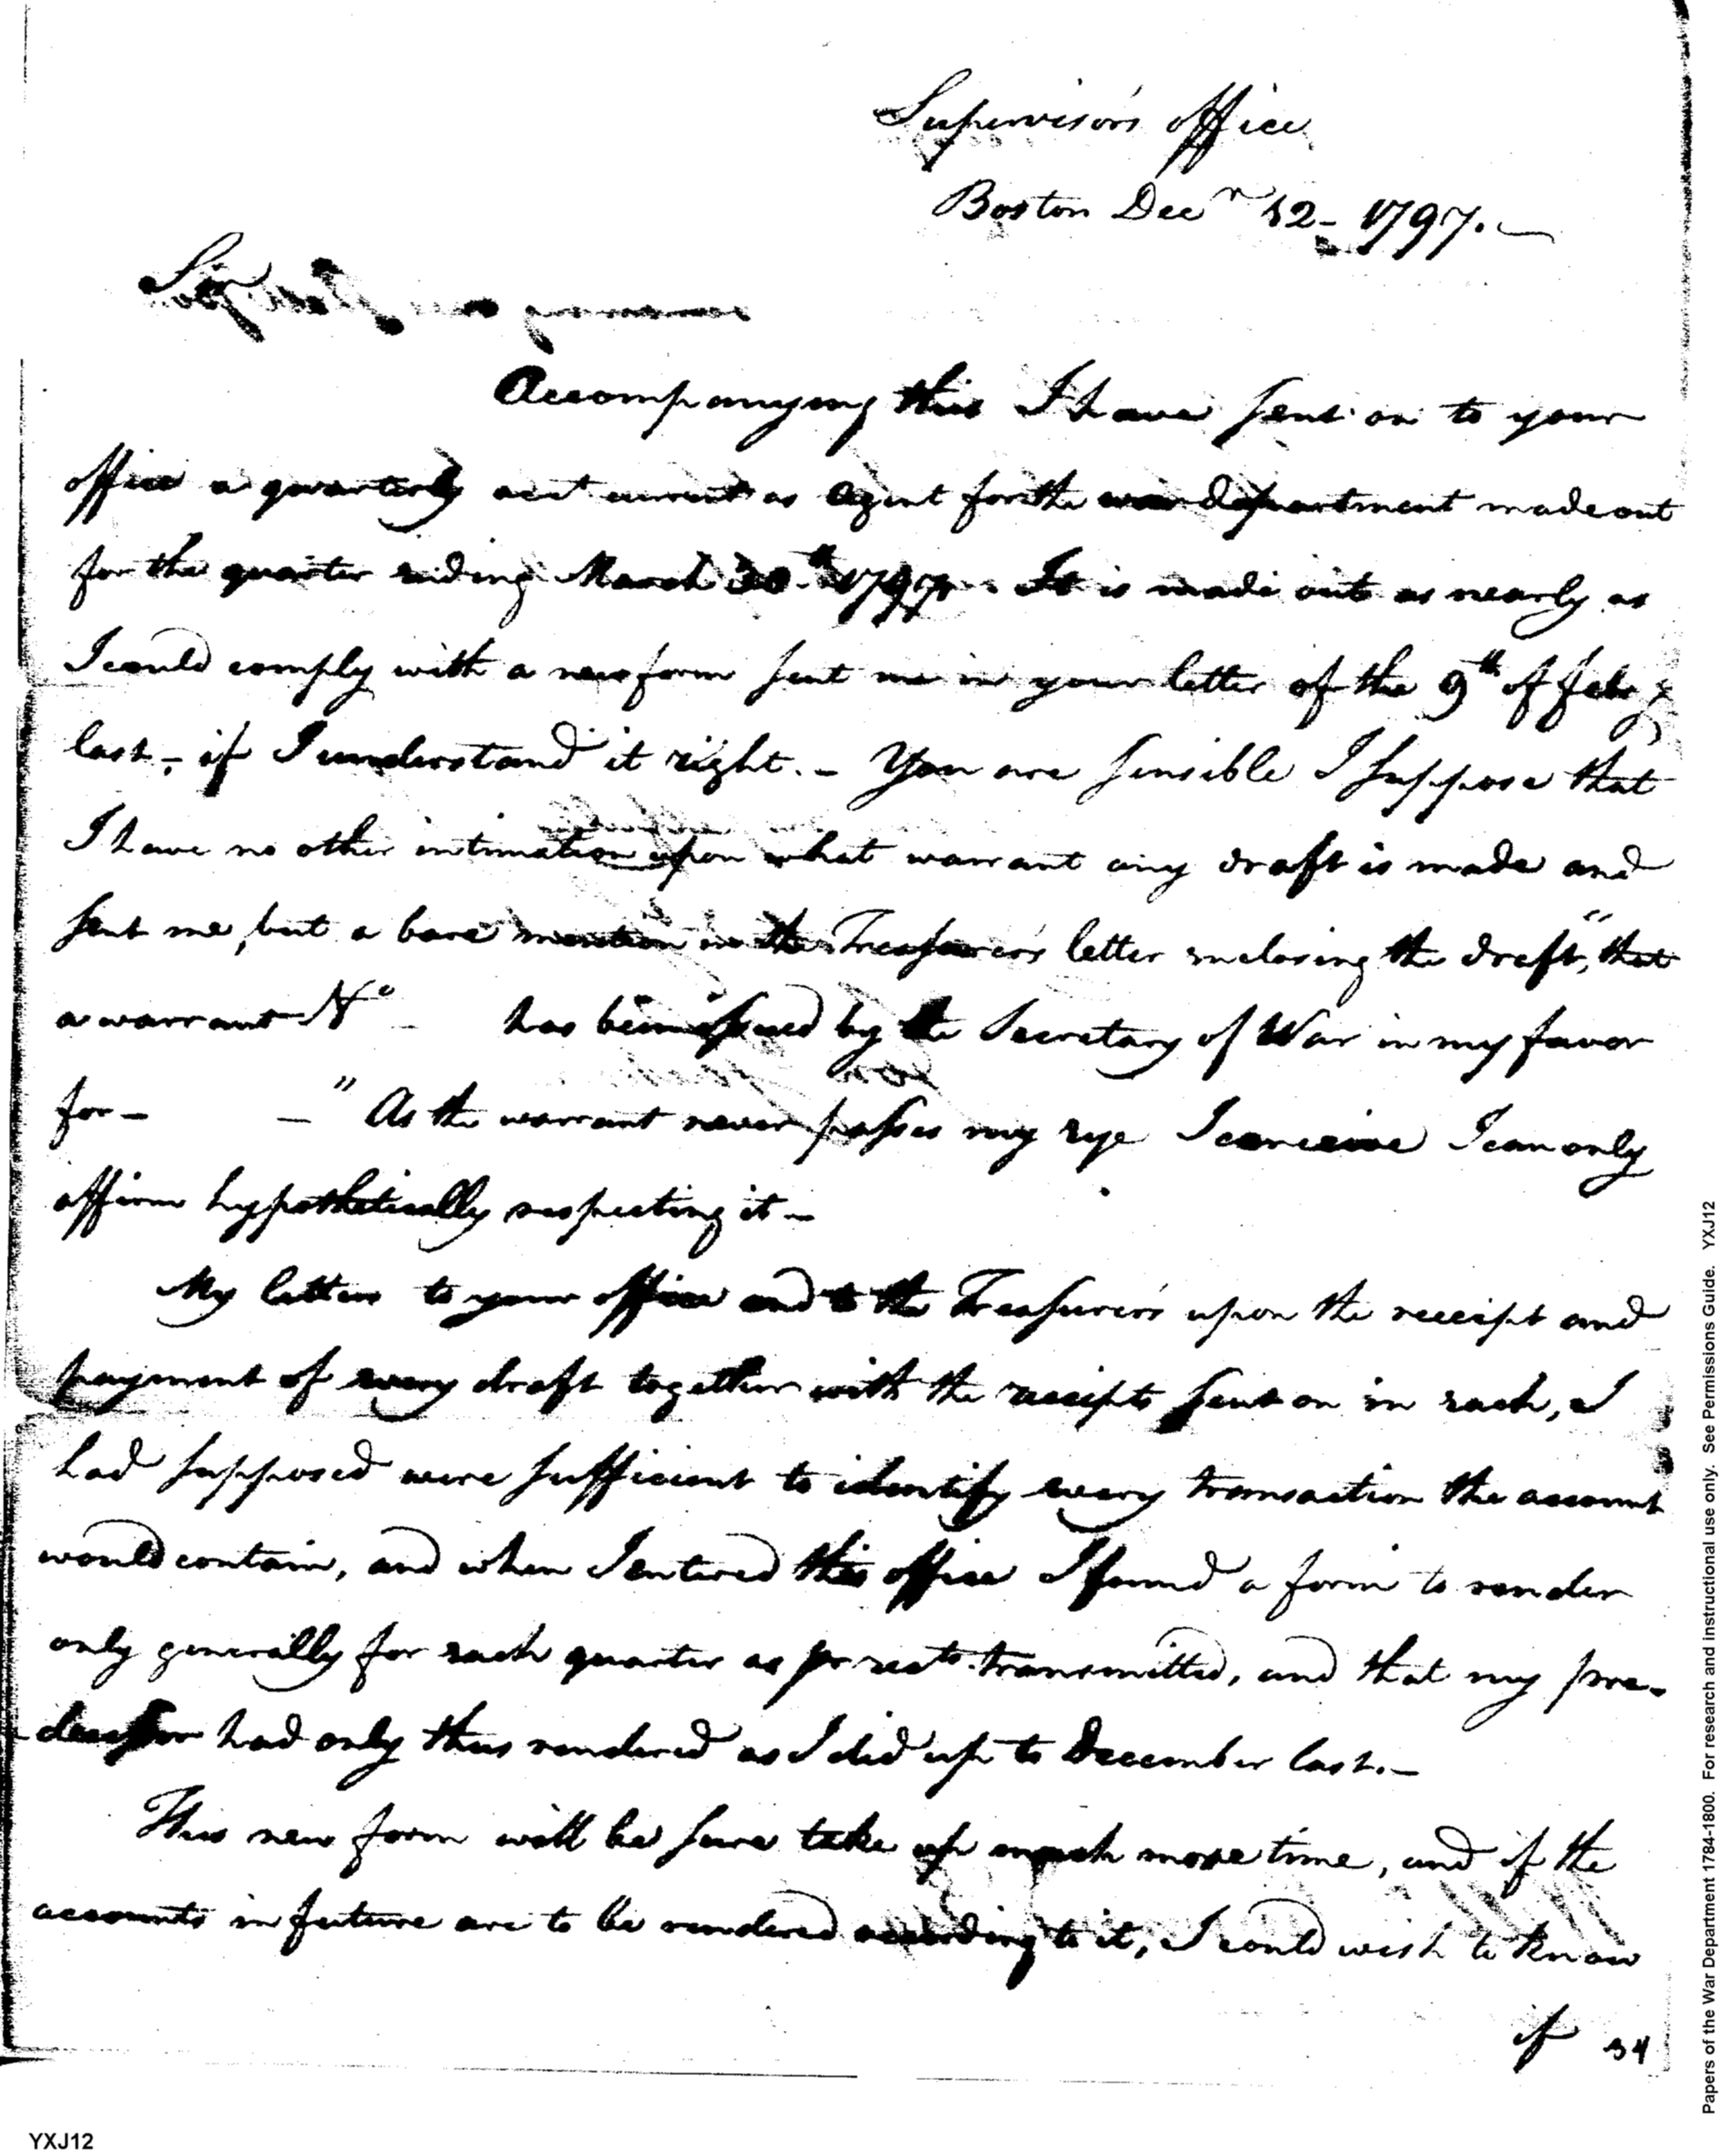 Supervisor's office
Boston Decr 12 - 1797. -
Sir
Accompanying this I have sent on to your
office a quarterly acct current as agent for the war department made out
for the quarter ending March 30th 1797. It is made out as nearly as
I could comply with a new form sent me in your letter of the 9th of feby
last, - if I understand it right. - You are sensible I suppose that
I have no other intimation upon what warrant any draft is made and
sent me, but a bare mention in the Treasurer's letter enclosing the draft, "that
a warrant No - has been issued by the Secretary of War in my favor
for - - " As the warrant never passes my eye I conceive I can only
affirm hypothetically respecting it -
My letters to your office and to the Treasurer's upon the receipt and
payment of every draft together with the receipts sent on in each, I
had supposed were sufficient to identify every transaction the account
would contain, and when I entered this office I found a form to render
only generally for each quarter as pr rects. transmitted, and that my pre-
-decessor had only thus rendered as I did up to December last. -
This new form will be sure take up much more time, and if the
accounts in future are to be rendered according to it, I could wish to know
if 34
YXJ12
Papers of the War Department 1784-1800. For research and instructional use only. See Permissions Guide. YXJ12